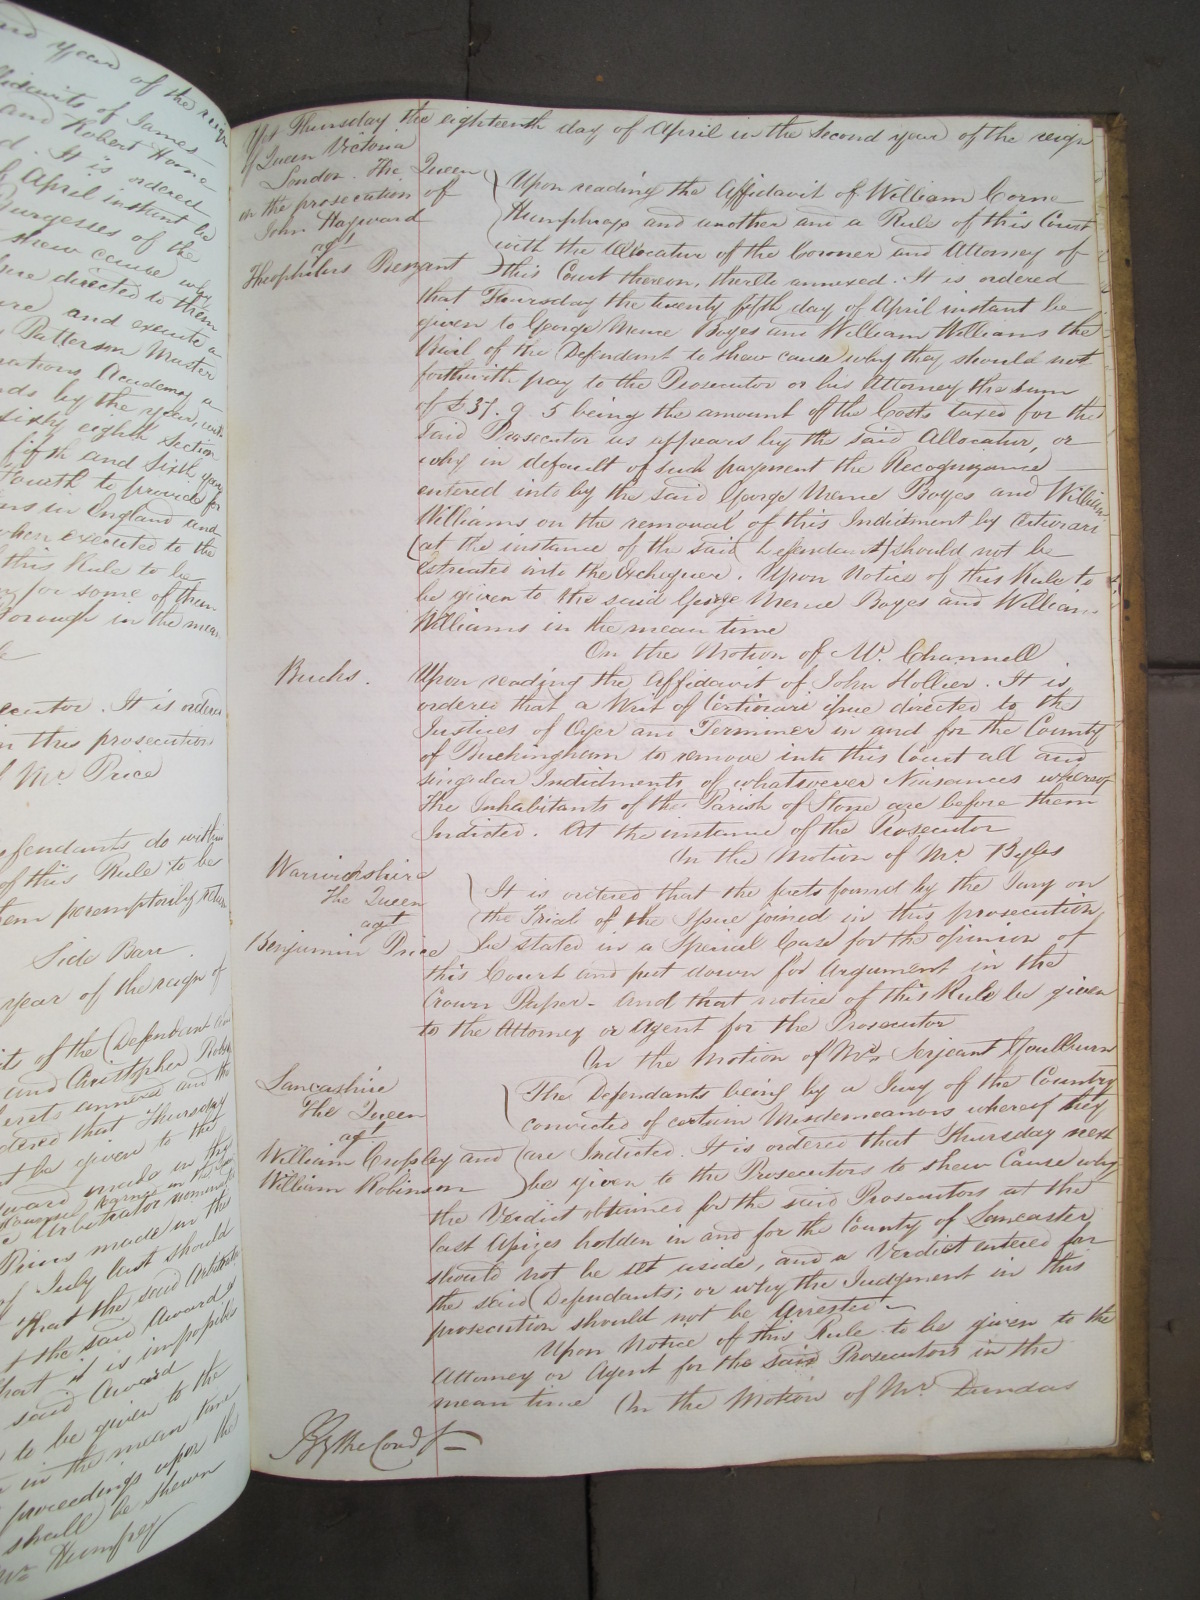 year of the reign
Affidavits of James
and Robert Horne
It is ordered
April instant be
Burgesses of the
shew cause why
directed to them
and execute a
Patterson Master
Academy a
by the year
sixty eighth section
fifth and Sixth years
Fourth to provide for
in England and
when executed to the
this Rule to be
for some of them
Borough in the mean
It is ordered
in this prosecution
Mr. Price
Defendants do within
of this Rule to be
peremptorily return
Side Barr
year of the reign of
of the Defendant and
and Christopher
annexed and the
that Thursday
be given to the
made in the
Arbitrator
made in the
July last should
That the said Arbitrator
the said Award
that it is impossible
said Award
to be given to the
in the mean time
proceedings upon the
shall be shewn
Humfrey
Yps Thursday the eighteenth day of April in the Second year of the reign
of Queen Victoria
London. The Queen
on the prosecution of
John Hayward
agt
Theophilus Bezzant
Upon reading the Affidavit of William Corne
Humphreys and another and a Rule of this Court
with the Allocatur of the Coroner and Attorney of
this Court thereon, thereto annexed. It is ordered
that Thursday the twenty fifth day of April instant be
given to George Merce Boyes and William Williams the
Bail of the Defendant to shew cause why they should not
forthwith pay to the Prosecutor or his Attorney the sum
of £37. 9. 5 being the amount of the Costs taxed for the
said Prosecutor as appears by the said Allocatur, or
why in default of such payment the Recognizance
entered into by the said George Merce Boyes and William
Williams on the removal of this Indictment by Certiorari
(at the instance of the said Defendant) should not be
Estreated into the Exchequer. Upon Notice of this Rule to
be given to the said George Merce Boyes and William
Williams in the mean time
On the Motion of Mr. Channell
Bucks. Upon reading the Affidavit of John Hollier. It is
ordered that a Writ of Certiorari issue directed to the
Justices of Oyer and Terminer in and for the County
of Buckingham to remove into this Court all and
singular Indictments of whatsoever Nuisances whereof
the Inhabitants of the Parish of Stone are before them
Indicted. At the instance of the Prosecutor
On the Motion of Mr. Byles
Warwickshire
The Queen
agt
Benjamin Price
It is ordered that the facts found by the Jury on
the Trial of the Issue joined in this prosecution
be stated in a Special Case for the opinion of
this Court and put down for Argument in the
Crown Paper - And that notice of this Rule be given
to the Attorney or Agent for the Prosecutor
On the Motion of Mr. Serjeant Goulburn
Lancashire
The Queen
agt
William Cropley and
William Robinson
The Defendants being by a Jury of the Country
convicted of certain Misdemeanors whereof they
are Indicted. It is ordered that Thursday next
be given to the Prosecutors to shew Cause why
the Verdict obtained for the said Prosecutors at the
last Assizes holden in and for the County of Lancaster
should not be set aside, and a Verdict entered for
the said Defendants; or why the Judgment in this
prosecution should not be Arrested -
Upon Notice of this Rule to be given to the
Attorney or Agent for the said Prosecutors in the
mean time On the Motion of Mr. Dundas
By the Court